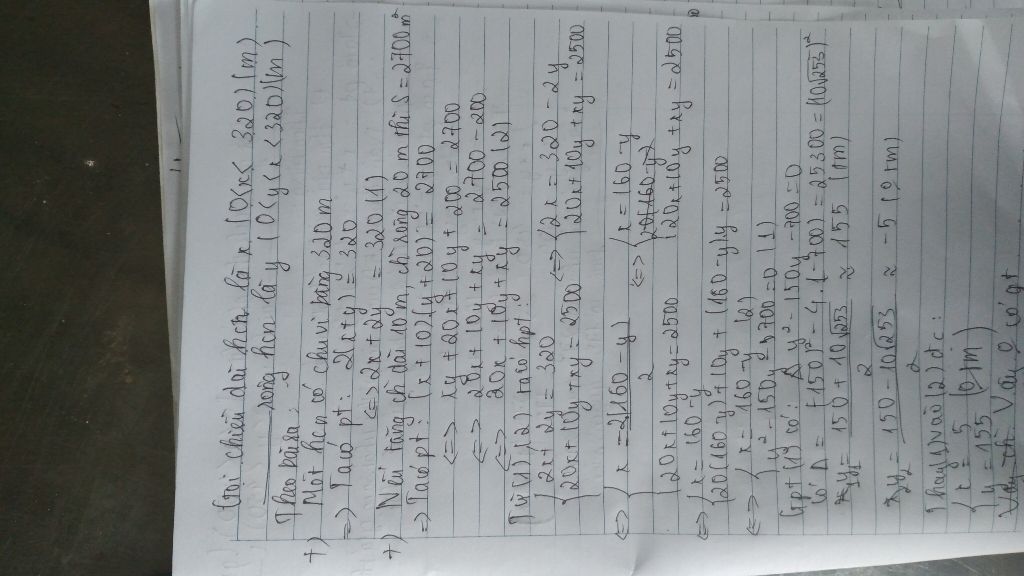 Gọi chiều dài hcn là x (0<x< 320)(m)
rộng hcn là y (0<y<x<320)(m)
Theo bài ra:
+) Một hcn có chu vi bằng 320m
=> Ta có pt: 2(x+y) = 320
<=> 2x + 2y = 320 (1)
+) Nếu tăng ch dài 10m, ch rộng 20m thì S = 2700m²
=> Ta có pt: (x + 10)(y + 20) = 2700
<=> xy + 20x + 10y + 200 = 2700
<=> 20x + 10y + xy = 2700 - 200
<=> 20x + 10y + xy = 2500 (2)
Từ (1)(2) ta có hpt:
{ 2x + 2y = 320 <=> { 2x = 320 - 2y
{ 20x + 10y + xy = 2500 { 20x + 10y + xy = 2500
<=> { x = 2(160 - y) / 2 <=> { x = 160 - y
{ 20x + 10y + xy = 2500 { 20x + 10y + xy = 2500
<=> { x = 160 - y
{ 20(160 - y) + 10y + (160 - y)y = 2500
<=> { x = 160 - y (2)
{ y² - 150y - 700 = 0 (1)
Gpt (1) có: y² - 150y - 700 = 0
Có Δ = (-150)² - 4.(-700) = 25300 = (10√253)²
y₁ = 150 + 10√253 / 2 ≈ 155 (m)
y₂ = 150 - 10√253 / 2 ≈ -5 (m)
Thay (1) vào (2) đc:
{ x = 5
{ y = 155 (m)
Vậy